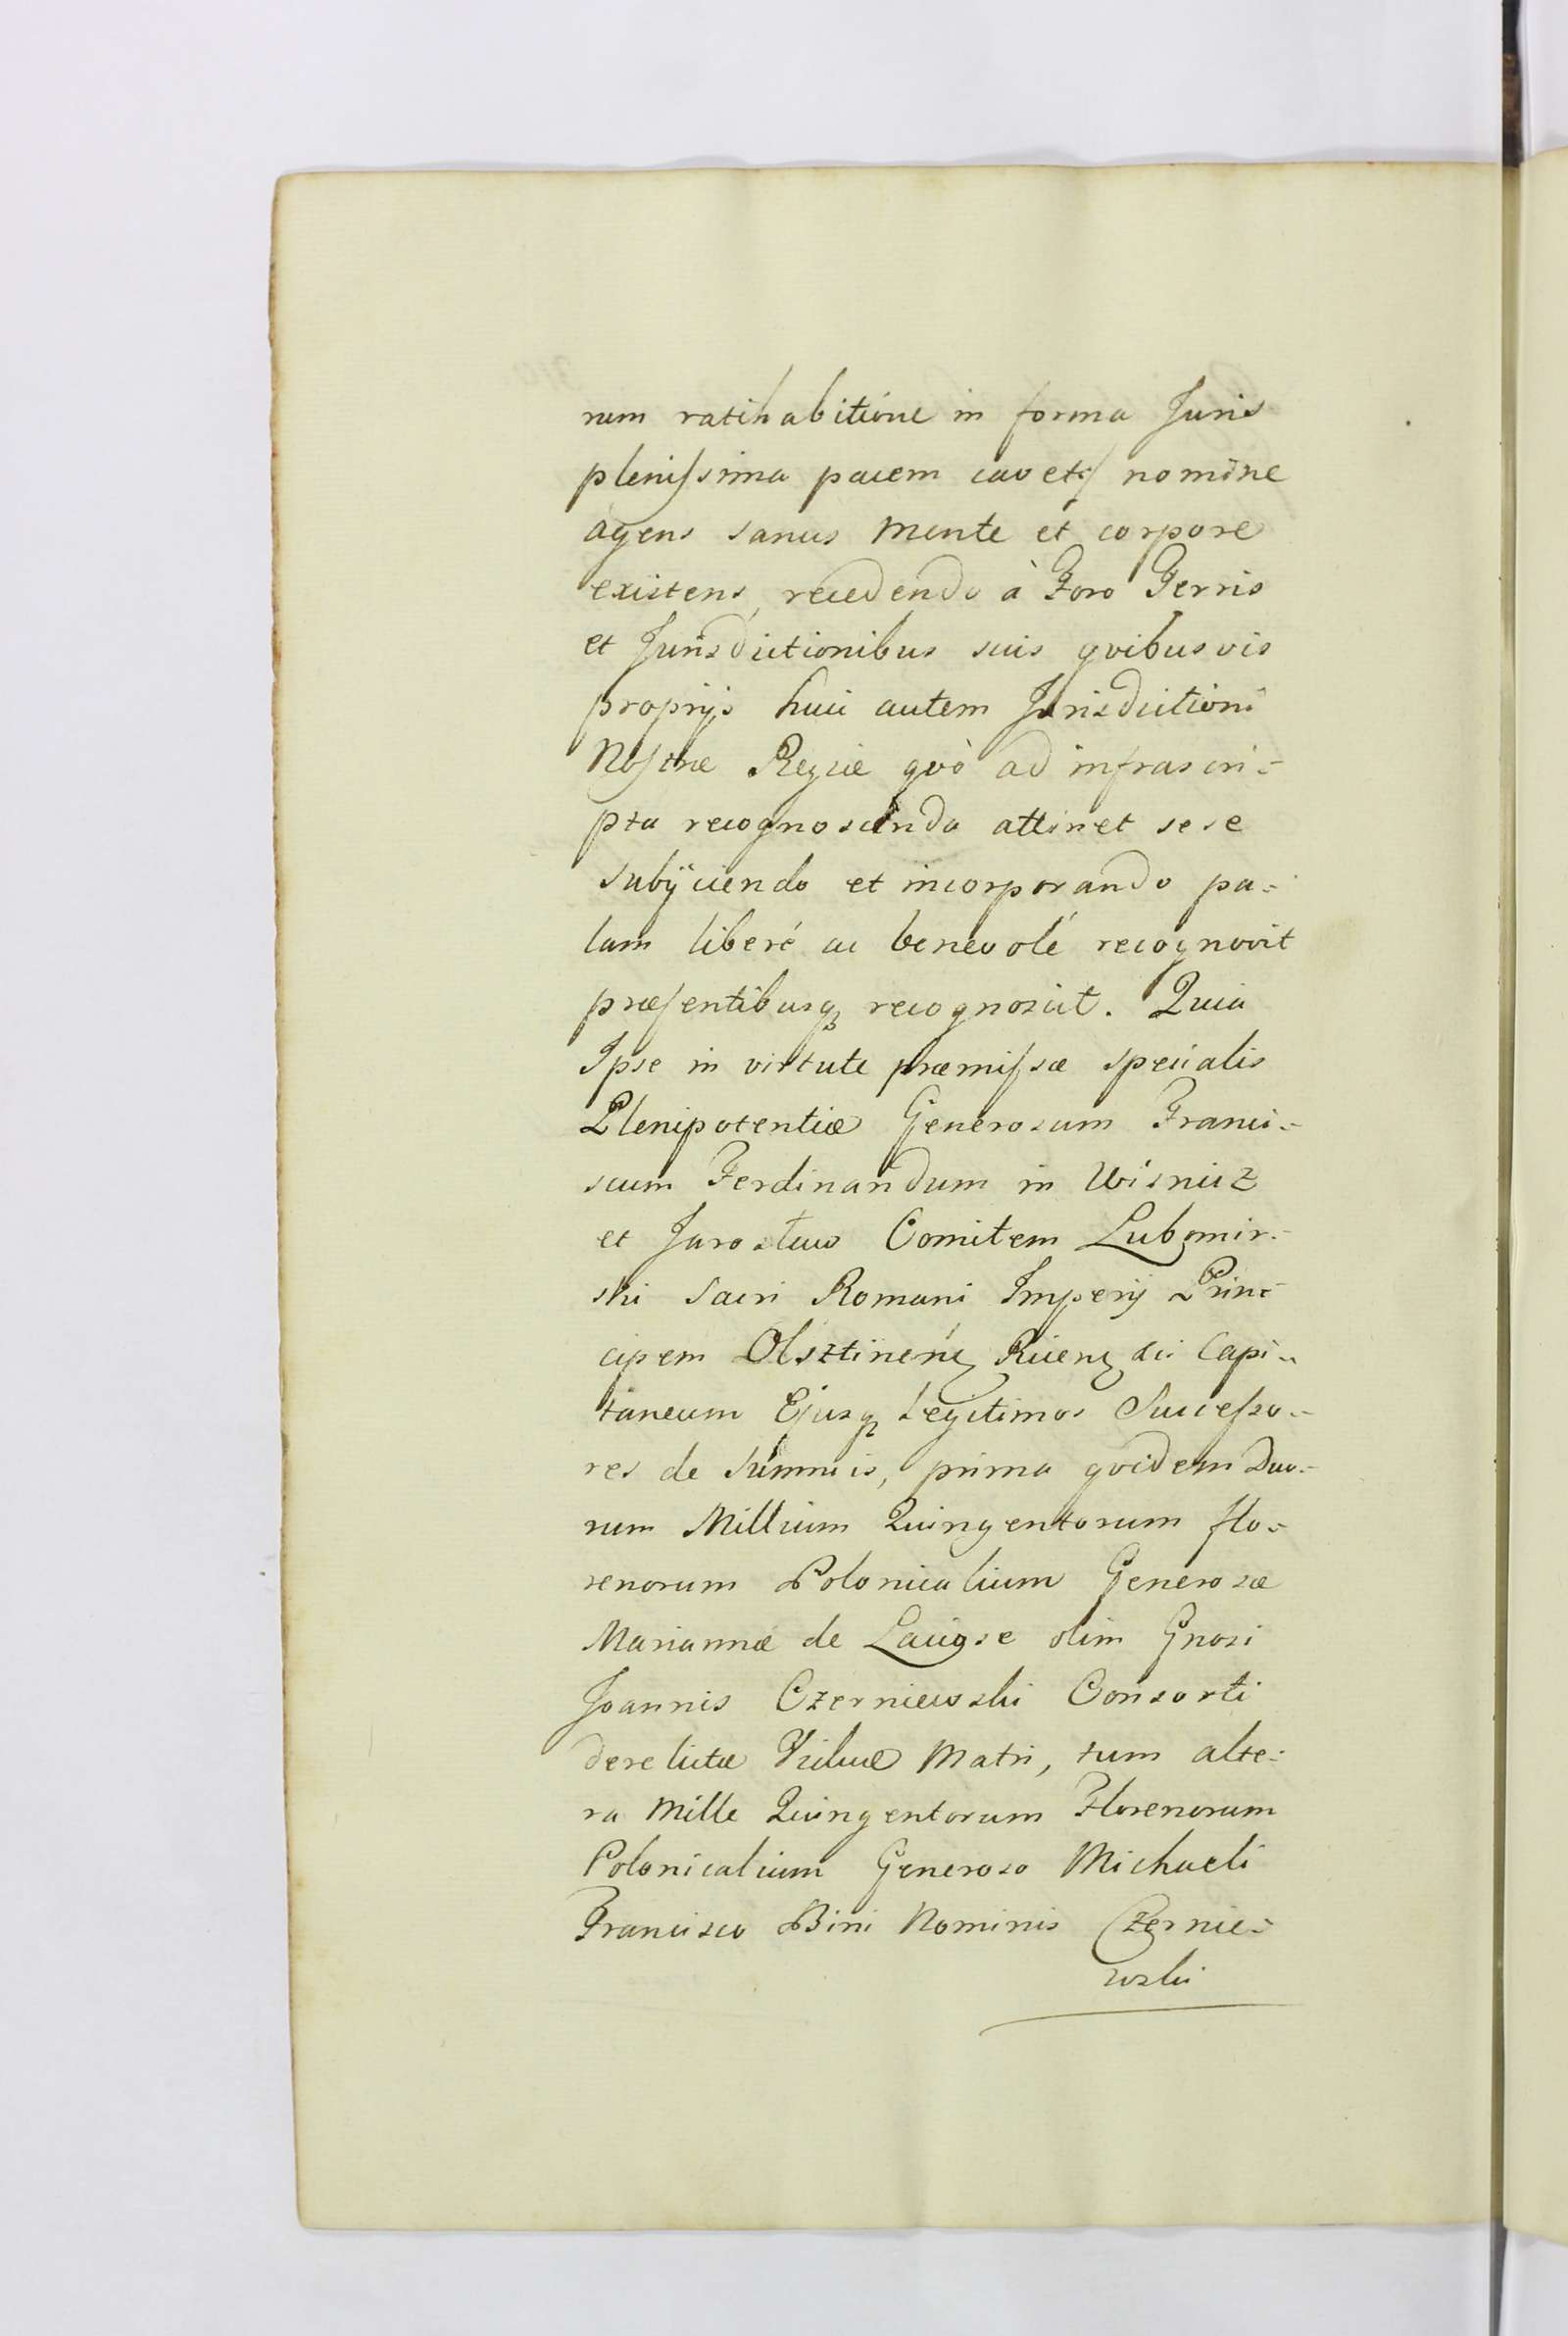 rum ratihabitióne in forma Juris
plenissima pacem cavetꝭ nomine
agens sanus mente et corpore
existens, recedendo à Foro Terris
et Jurisdictionibus suis qvibusvis
proprijs huic autem Jurisdictioni
Nostræ Regiæ qvò ad infrascri=
pta recognoscenda attinet sese
subijciendo et incorporando pa=
lam liberé ac benevolé recognovit
præsentibusqꝫ recognoscit. Quia
Ipse in virtute præmissæ specialis
Plenipotentiæ Generosum Franci=
scum Ferdinandum in Wisnicz
et Jarosław Comitem Lubomir=
ski Sacri Romani Imperij Prin=
cipem Olsztinenꝫ Ricenꝫ &c: Capi=
taneum Ejusqꝫ Legitimos Successo=
res de Summis, prima qvidem Duo=
rum Millium Quingentorum flo=
renorum Polonicalium Generosæ
Mariannæ de olim Gnosi
Joannis Czerniewski Consorti
derelictæ Viduæ Matri, tum alte=
ra Mille Quingentorum Florenorum
Polonicalium Generoso Michaeli
Francisco Bini Nominis Czernie=
wski